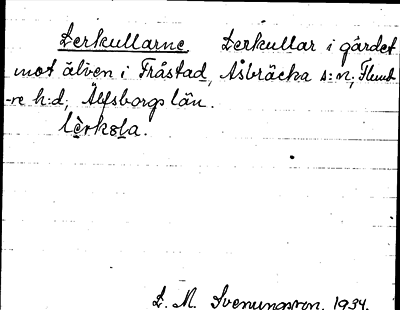 Lerkullarne Lerkullar i gärdet
mot älven i Fråstad, Åsbräcka s:n, Flund-
-re h:d, Älfsborgs län.
lèrkola.
L. M. Svenungsson. 1934.